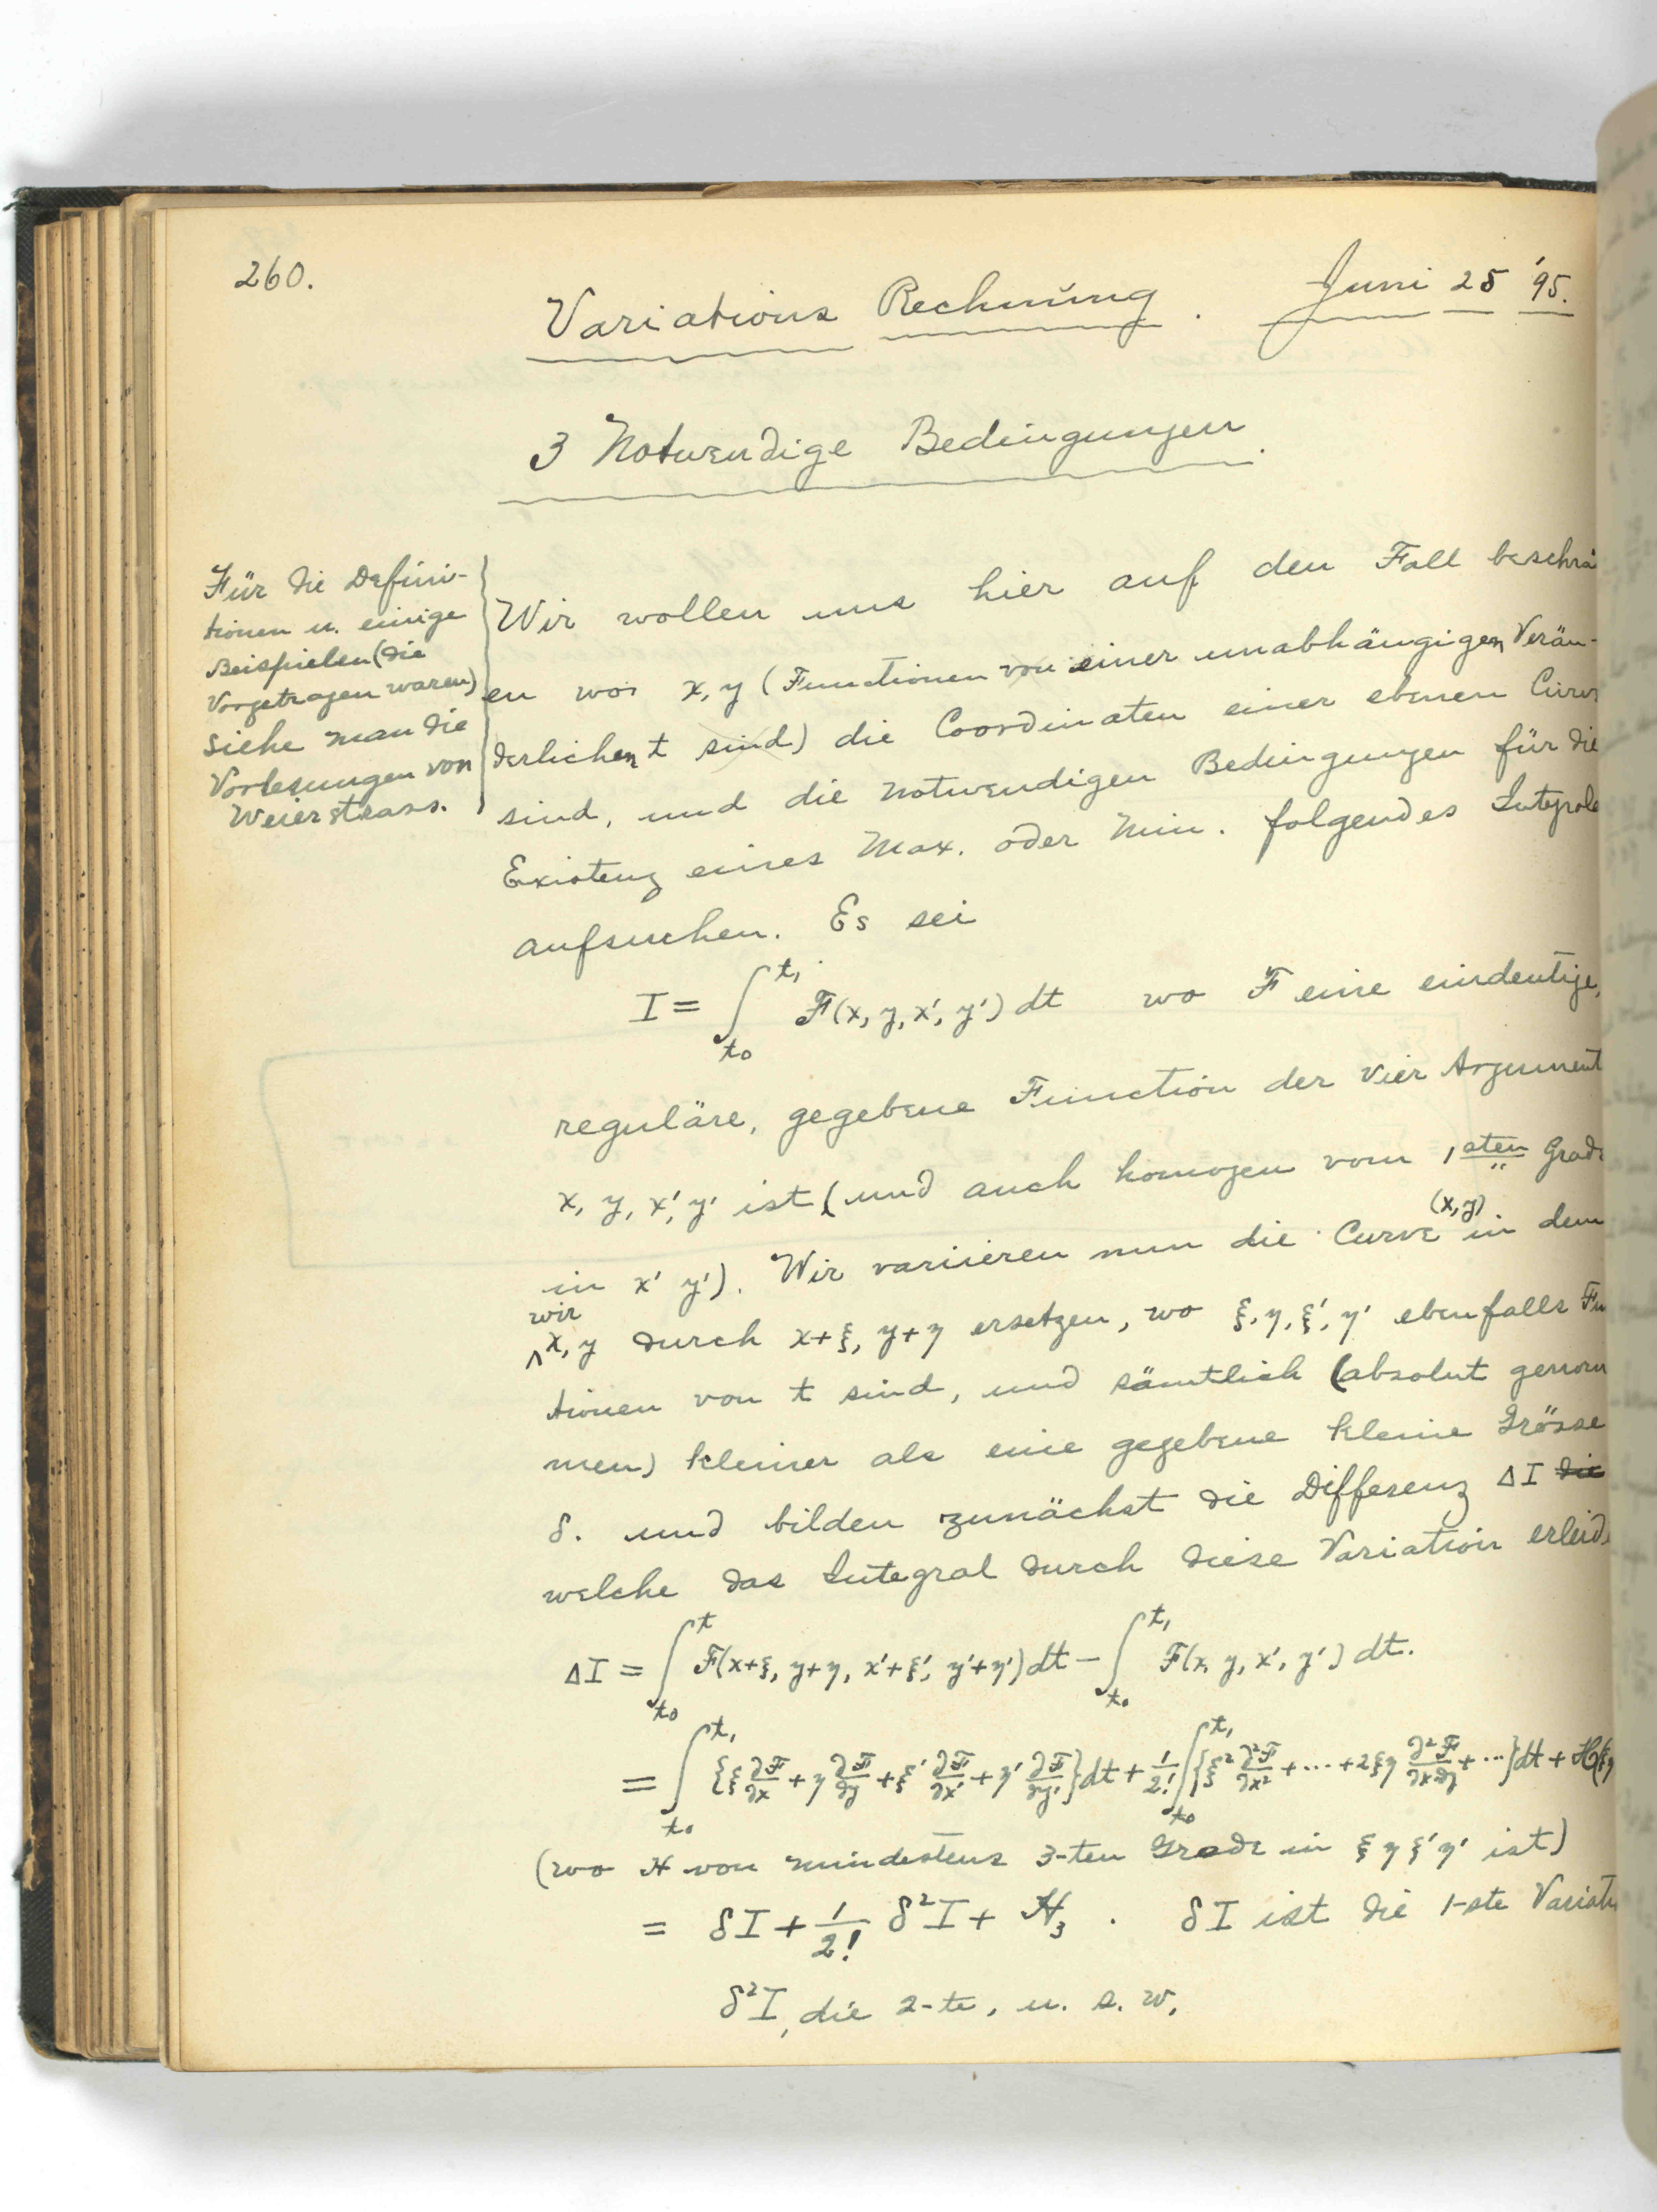 260.
Variations Rechnung. Juni 25 '95.
3 Notwendige Bedingungen.
Für die Defini-
tionen u. einige
Beispielen (die
Vorgetragen waren)
siehe man die
Vorlesungen von
Weierstrass.
Wir wollen uns hier auf den Fall beschrä
en wo x, y (Functionen von einer unabhängigen Verän-
derlichen t sind) die Coordinaten einer ebenen Curve
sind, und die notwendigen Bedingungen für die
Existenz eines Max. oder Min. folgendes Integrals
aufsuchen. Es sei
I = ∫_{t₀}^{t₁} F(x, y, x', y') dt wo F eine eindeutige,
reguläre, gegebene Function der vier Argument
x, y, x', y' ist (und auch homogen vom 1sten Grade
in x' y'). Wir variieren nun die Curve (x, y) in dem
wir x, y durch x+ξ, y+η ersetzen, wo ξ, η, ξ', η' ebenfalls Fu
tionen von t sind, und sämtlich (absolut genom
men) kleiner als eine gegebene kleine Grösse
δ. und bilden zunächst die Differenz ΔI die
welche das Integral durch diese Variation erleid
ΔI = ∫_{t₀}^{t} F(x+ξ, y+η, x'+ξ', y'+η') dt − ∫_{t₀}^{t₁} F(x, y, x', y') dt.
= ∫_{t₀}^{t₁} {ξ ∂F/∂x + η ∂F/∂y + ξ' ∂F/∂x' + η' ∂F/∂y'} dt + 1/2! ∫_{t₀}^{t₁} {ξ² ∂²F/∂x² + ... + 2ξη ∂²F/∂x∂y + ...} dt + H(ξ, η
(wo H von mindestens 3-ten Grade in ξ η ξ' η' ist)
= δI + 1/2! δ²I + H₃. δI ist die 1-ste Variati
δ²I, die 2-te, u. s. w.